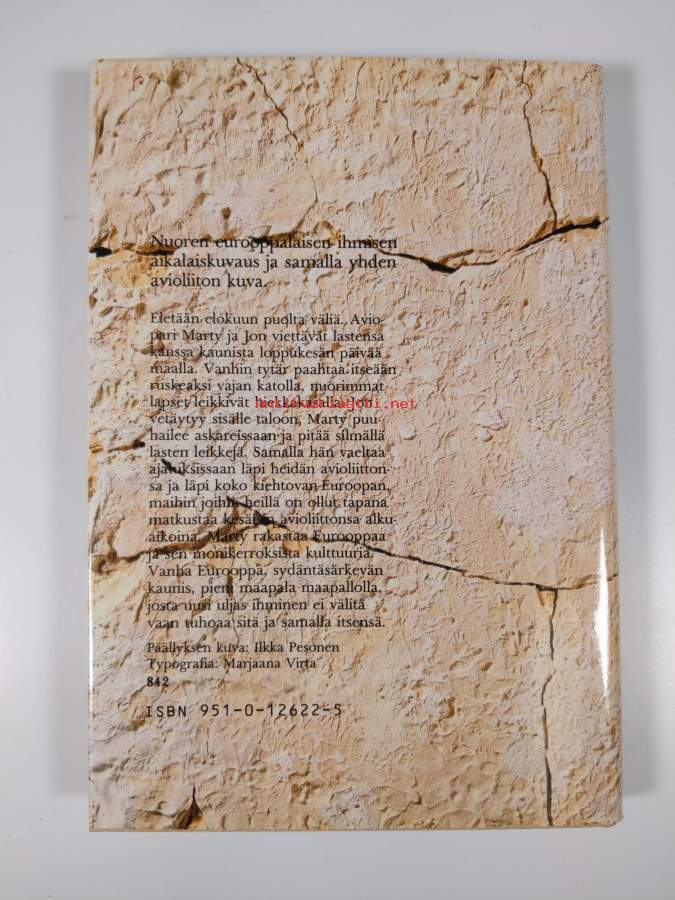 Nuoren eurooppalaisen ihmisen
aikalaiskuvaus ja samalla yhden
avioliiton kuva.
Eletään elokuun puolta väliä. Avio-
pari Marty ja Jon viettävät lastensa
kanssa kaunista loppukesän päivää
maalla. Vanhin tytär paahtaa itseään
ruskeaksi vajan katolla, nuorimmat
lapset leikkivät hiekkakasalla. Jon
vetäytyy sisälle taloon, Marty puu-
hailee askareissaan ja pitää silmällä
lasten leikkejä. Samalla hän vaeltaa
ajatuksissaan läpi heidän avioliitton-
sa ja läpi koko kiehtovan Euroopan,
maihin joihin heillä on ollut tapana
matkustaa kesäisin avioliittonsa alku-
aikoina. Marty rakastaa Eurooppaa
ja sen monikerroksista kulttuuria.
Vanha Eurooppa, sydäntäsärkevän
kaunis, pieni maapala maapallolla,
josta uusi uljas ihminen ei välitä
vaan tuhoaa sitä ja samalla itsensä.
Päällyksen kuva: Ilkka Pesonen
Typografia: Marjaana Virta
842
ISBN 951-0-12622-5